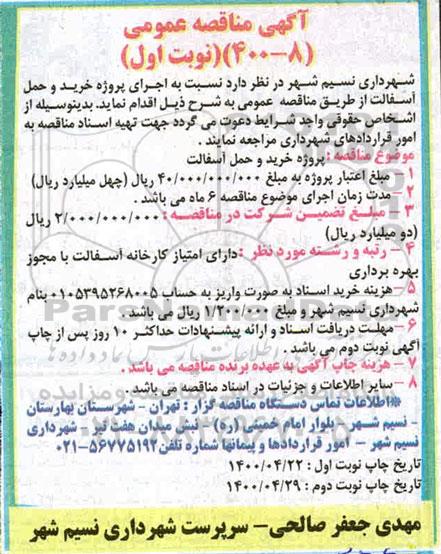 آگهی مناقصه عمومی
(۸-۴۰۰)(نوبت اول)
شهرداری نسیم شهر در نظر دارد نسبت به اجرای پروژه خرید و حمل
آسفالت از طریق مناقصه عمومی به شرح ذیل اقدام نماید. بدینوسیله از
اشخاص حقوقی واجد شرایط دعوت می گردد جهت تهیه اسناد مناقصه به
امور قراردادهای شهرداری مراجعه نمایند .
موضوع مناقصه : پروژه خرید و حمل آسفالت
۱ – مبلغ اعتبار پروژه به مبلغ ۴۰/۰۰۰/۰۰۰/۰۰۰ ریال (چهل میلیارد ریال)
۲ – مدت زمان اجرای موضوع مناقصه ۶ ماه می باشد .
۳ – مبلغ تضمین شرکت در مناقصه : ۲/۰۰۰/۰۰۰/۰۰۰ ریال
(دو میلیارد ریال)
۴ – رتبه و رشته مورد نظر : دارای امتیاز کارخانه آسفالت با مجوز
بهره برداری
۵–هزینه خرید اسناد به صورت واریز به حساب ۰۱۰۵۳۹۵۲۶۸۰۰۵ بنام
شهرداری نسیم شهر و مبلغ ۱/۲۰۰/۰۰۰ ریال می باشد .
۶–مهلت دریافت اسناد و ارائه پیشنهادات حداکثر ۱۰ روز پس از چاپ
آگهی نوبت دوم می باشد .
۷ – هزینه چاپ آگهی به عهده برنده مناقصه می باشد .
۸ – سایر اطلاعات و جزئیات در اسناد مناقصه می باشد .
*اطلاعات تماس دستگاه مناقصه گزار : تهران – شهرستان بهارستان
– نسیم شهر – بلوار امام خمینی (ره) – نبش میدان هفت تیر – شهرداری
نسیم شهر – امور قراردادها و پیمانها شماره تلفن ۵۶۷۷۵۱۹۲–۰۲۱
تاریخ چاپ نوبت اول : ۱۴۰۰/۰۴/۲۲
تاریخ چاپ نوبت دوم : ۱۴۰۰/۰۴/۲۹
مهدی جعفر صالحی – سرپرست شهرداری نسیم شهر